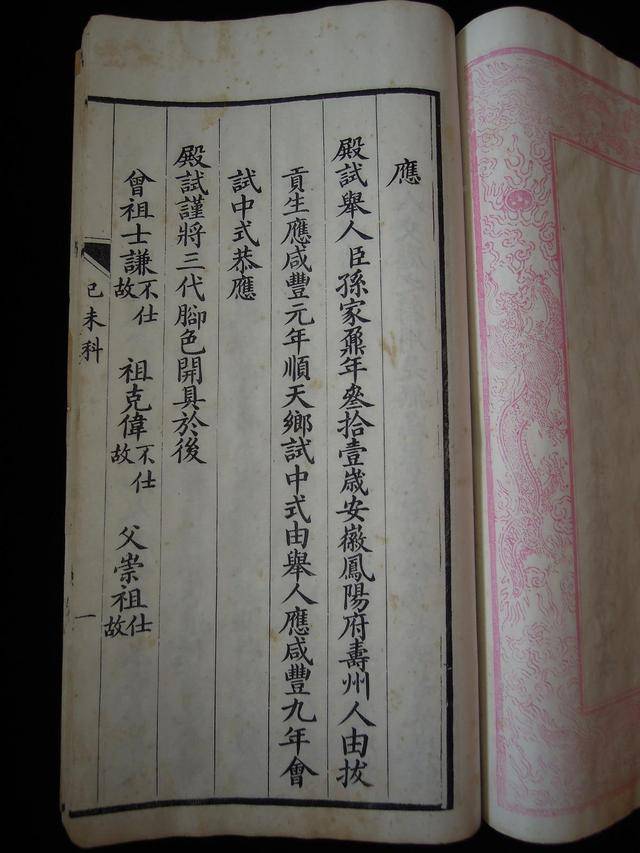 應
殿試舉人臣孫家鼐年叄拾壹歲安徽鳳陽府壽州人由拔
貢生應咸豐元年順天鄉試中式由舉人應咸豐九年會
試中式恭應
殿試謹將三代腳色開具於後
曾祖士謙不仕故 祖克偉不仕故 父崇祖仕故
己未科
一